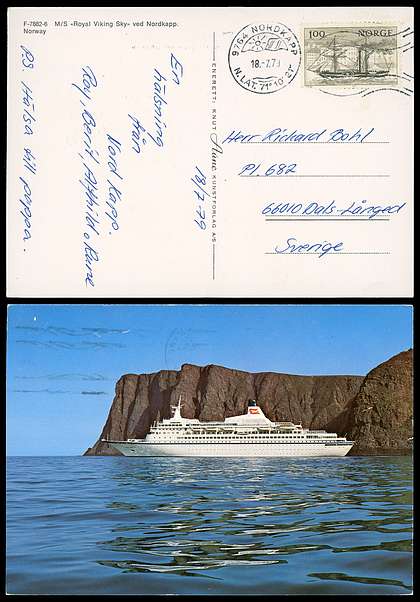 F-7882-6 M/S «Royal Viking Sky» ved Nordkapp.
Norway
En
hälsning
från
Nord Kapp.
18/7-79
Roy, Berit,
PS. Hälsa till pappa.
ENERETT: KNUT Aune KUNSTFORLAG AS
9764 NORDKAPP
18.-7.79
N.LAT. 71° 10' 21"
100 NORGE
Herr Richard Bohl
Pl. 682
66010 Dals-Långed
Sverige